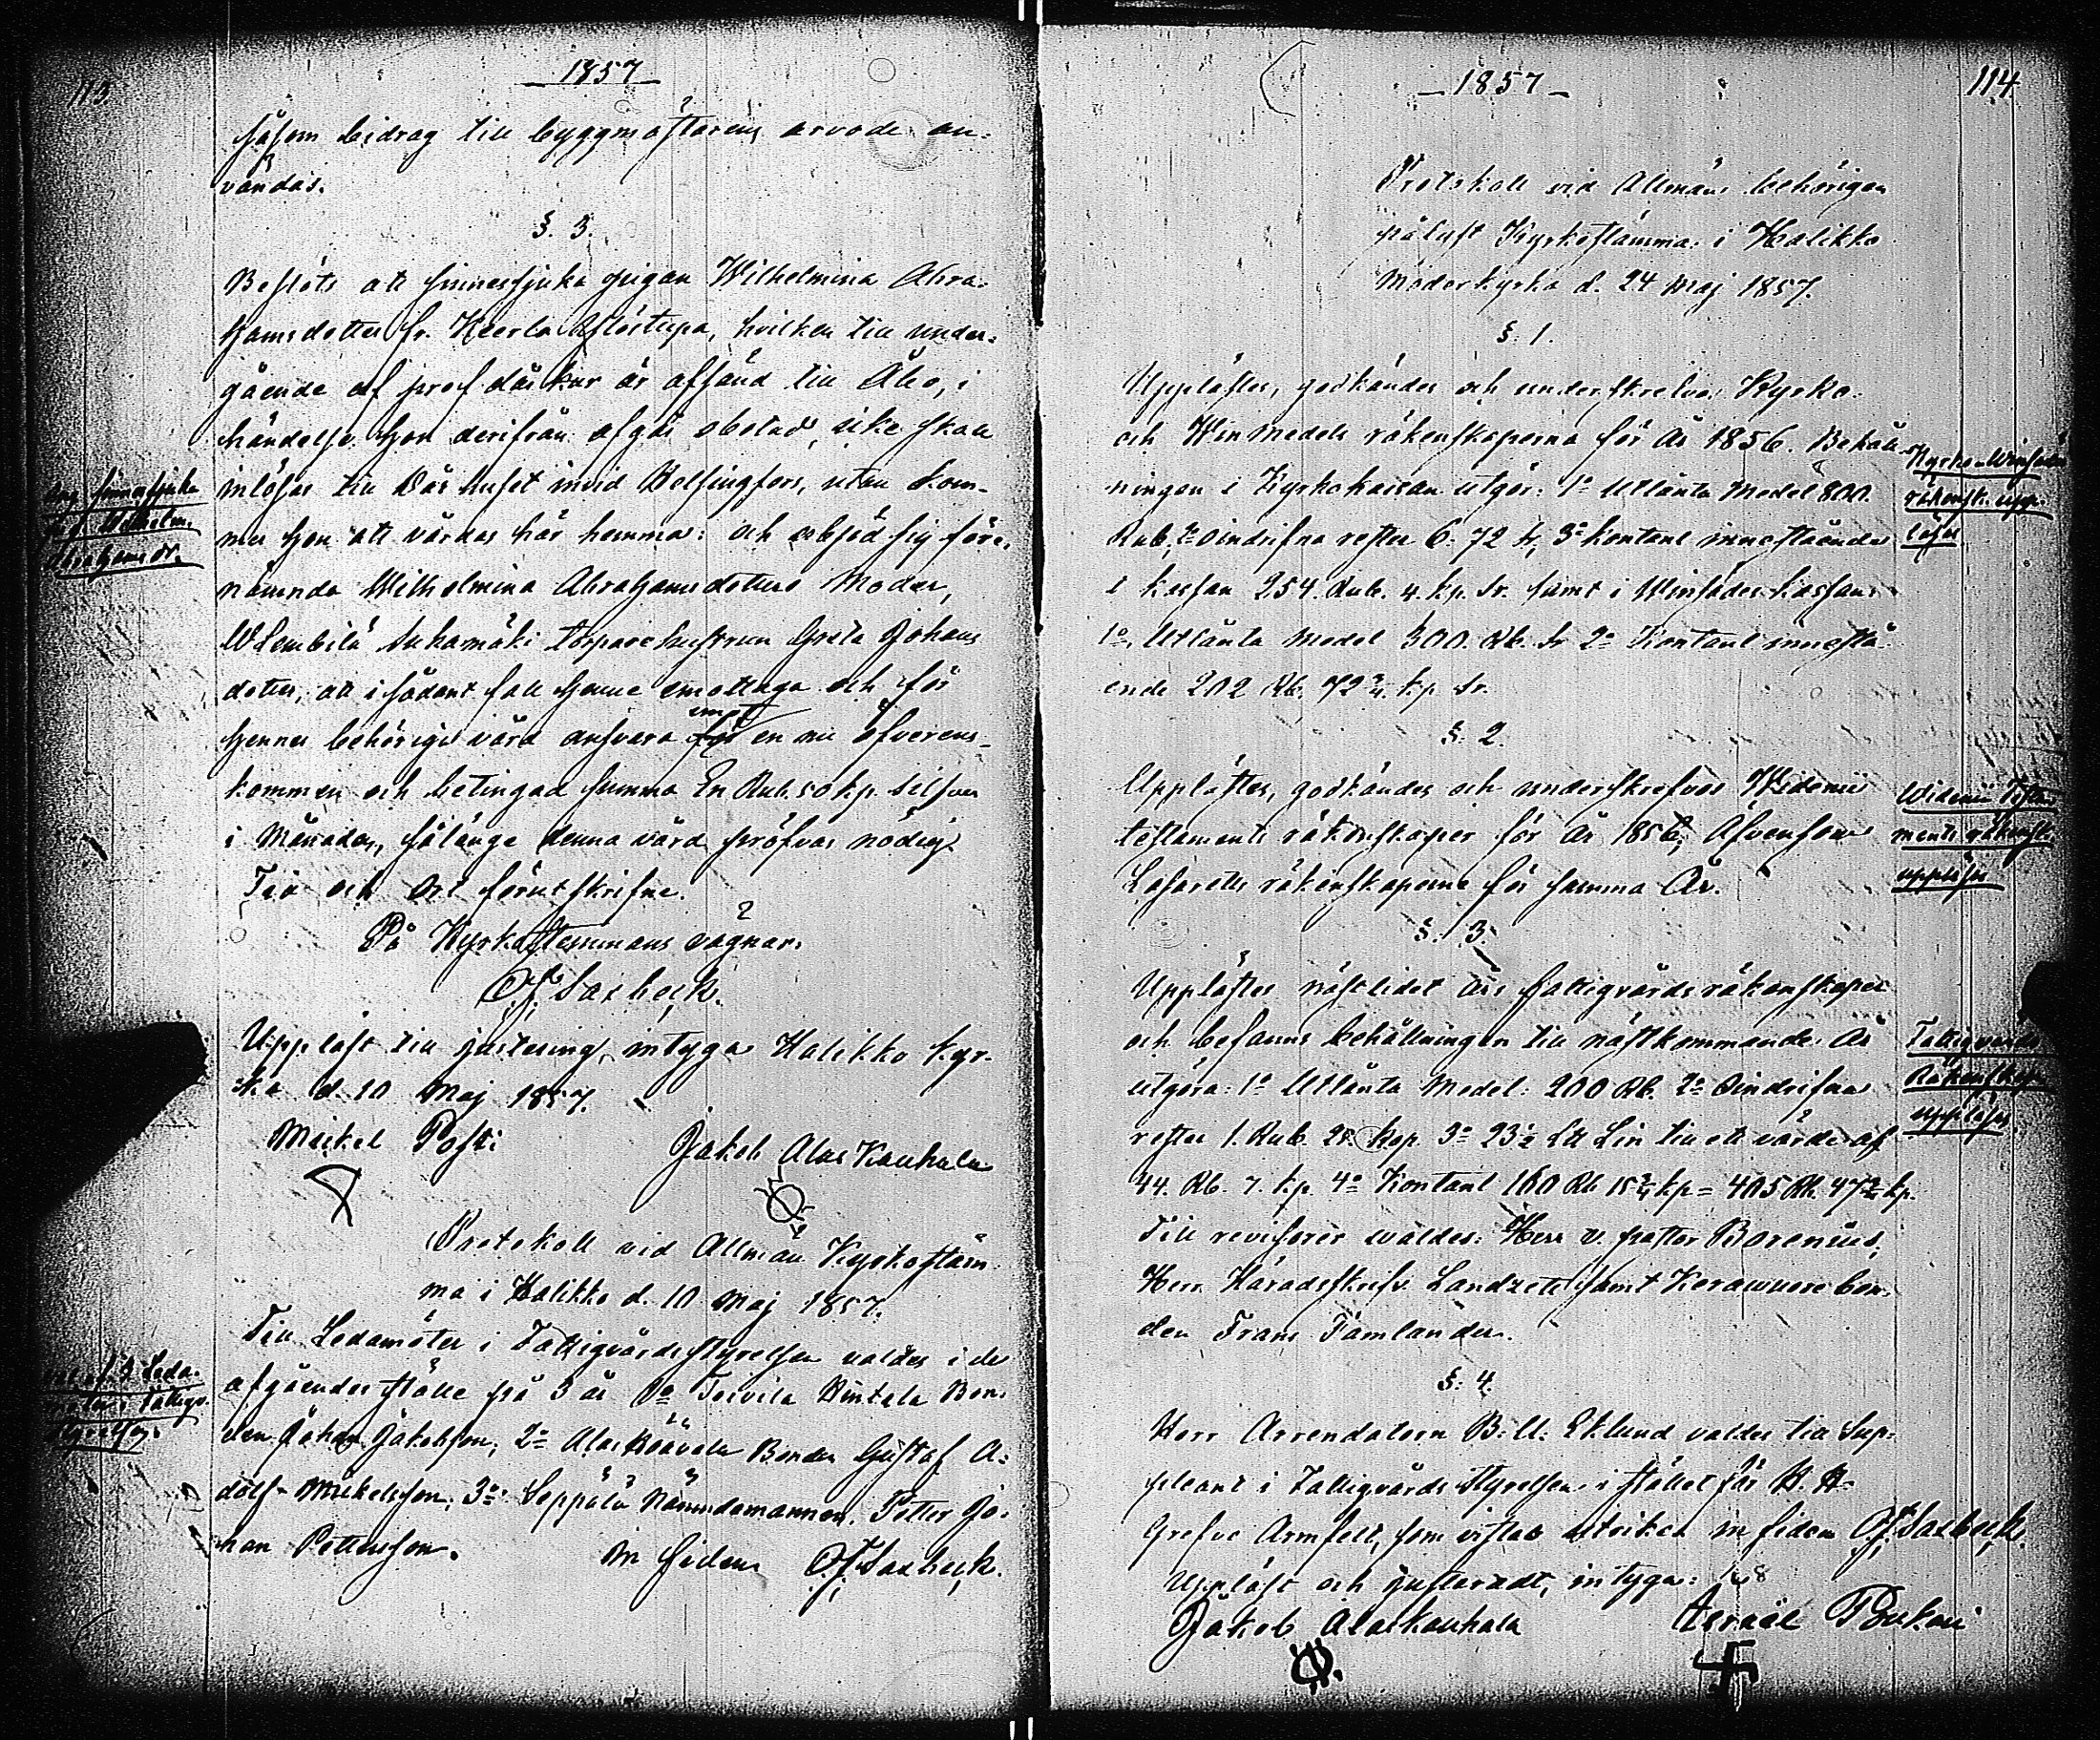 113
1857
såsom bidrag till byggmästarens arvode an-
vändas.
§. 3.
Beslöts att sinnessjuka pigan Wilhelmina Abra-
hamsdotter fr. Keerla, hvilken till under-
gående af prof där kur är afsänd till Åbo, i
händelse hon derifrån afgår obotad, icke skall
inlösas till Dårhuset invid Helsingfors, utan kom-
mer hon att vårdas här hemma: och åtsjöd sig före-
nämnda Wilhelmina Abrahamsdotters Moder,
Wlembilä Juhamäki torpare hustrun Greta Johans
dotter, att i sådant fall henne emottaga och för
hennes behöriga vård ansvara emot en nu öfverens-
kommen och betingad summa En Rub. 50 kp. silfver
i Månaden, sålänge denna vård pröfvas nödig.
Tid och Ort förutskrifne.
På Kyrkostemmans vägnar:
O. J. Saxbeck.
Uppläst till justering, intyga Halikko kyr-
ka d. 10 Maj 1857.
Mickel Posti
Jakob Alas Kauhala
Protokoll vid Allmän Kyrkostäm-
ma i Halikko d. 10 Maj 1857.
Till Ledamöter i Fattigvårdsstyrelsen valdes i de
afgåendes ställe på 3 år 1o Toivila Hintala Bon-
den Johan Jakobsson, 2o Alas Böävola Bonden Gustaf A-
dolf Mickelsson; 3o Seppälä Nämndemannen Petter Jo-
han Pettersson.
In fidem O. J. Saxbeck.
Ang. sinnessjuka
Wilhelm.
Abrahams dr.
Val af 3 Leda-
möter i Fattigv.
styrelsen
1857
114
Protokoll vid Allmän behörigen
pålyst Kyrkostämma i Halikko
Moderkyrka d. 24 Maj 1857.
§. 1.
Upplästes, godkändes och underskrefvos Kyrko-
och Winmedels räkenskaperna för År 1856. Behåll-
ningen i Kyrkokassan utgör: 1o Utlånta Medel 800.
Rub. 2o Oindrifna rester 6. 72 sr, 3o kontant innestående
i kassan 254. Rub. 4. kp. Sr. samt i Winsädes kassan
1o Utlånta Medel 300. Rb. Sr 2o Kontant innestå-
ende 202 Rb. 72 3/4. kp. Sr.
§. 2.
Upplästes, godkändes och underskrefvos Widenii
testaments räkenskaper för År 1856, Äfvensom
Lasaretts räkenskaperne för samma År.
§. 3.
Upplästes näst lidet års fattigvårds räkenskaper
och befanns behållningen till nästkommande År
utgöra: 1o Utlånta Medel: 200 Rb. 2o Oindrifna
rester 1. Rub. 25 kop. 3o 23 1/2 L℔ Lin till ett värde af
44. Rb. 7. kp. 4o Kontant 160 Rb 15 3/4 kp = 405 Rb. 47 3/4 kp.
Till revisorer valdes: Herr v. pastor Borenius,
Herr Häradsskrifv. Landzett samt Kerawuore bon-
den Frans Tämlander.
§. 4.
Herr Arrendatorn B. U. Eklund valdes till Sup-
pleant i Fattigvårds Styrelsen i stället för H. H.
Grefve Armfelt, som vistas utrikes in fidem O. J. Saxbeck.
Uppläst och justeradt, intyga:
Jakob Alaskauhala
Israel Pukari
Kyrko-Winsädes
räkensk. upp-
läses
Widenii Testa-
ments räkensk.
uppläses
Fattigvårds
Räkenskap.
uppläses